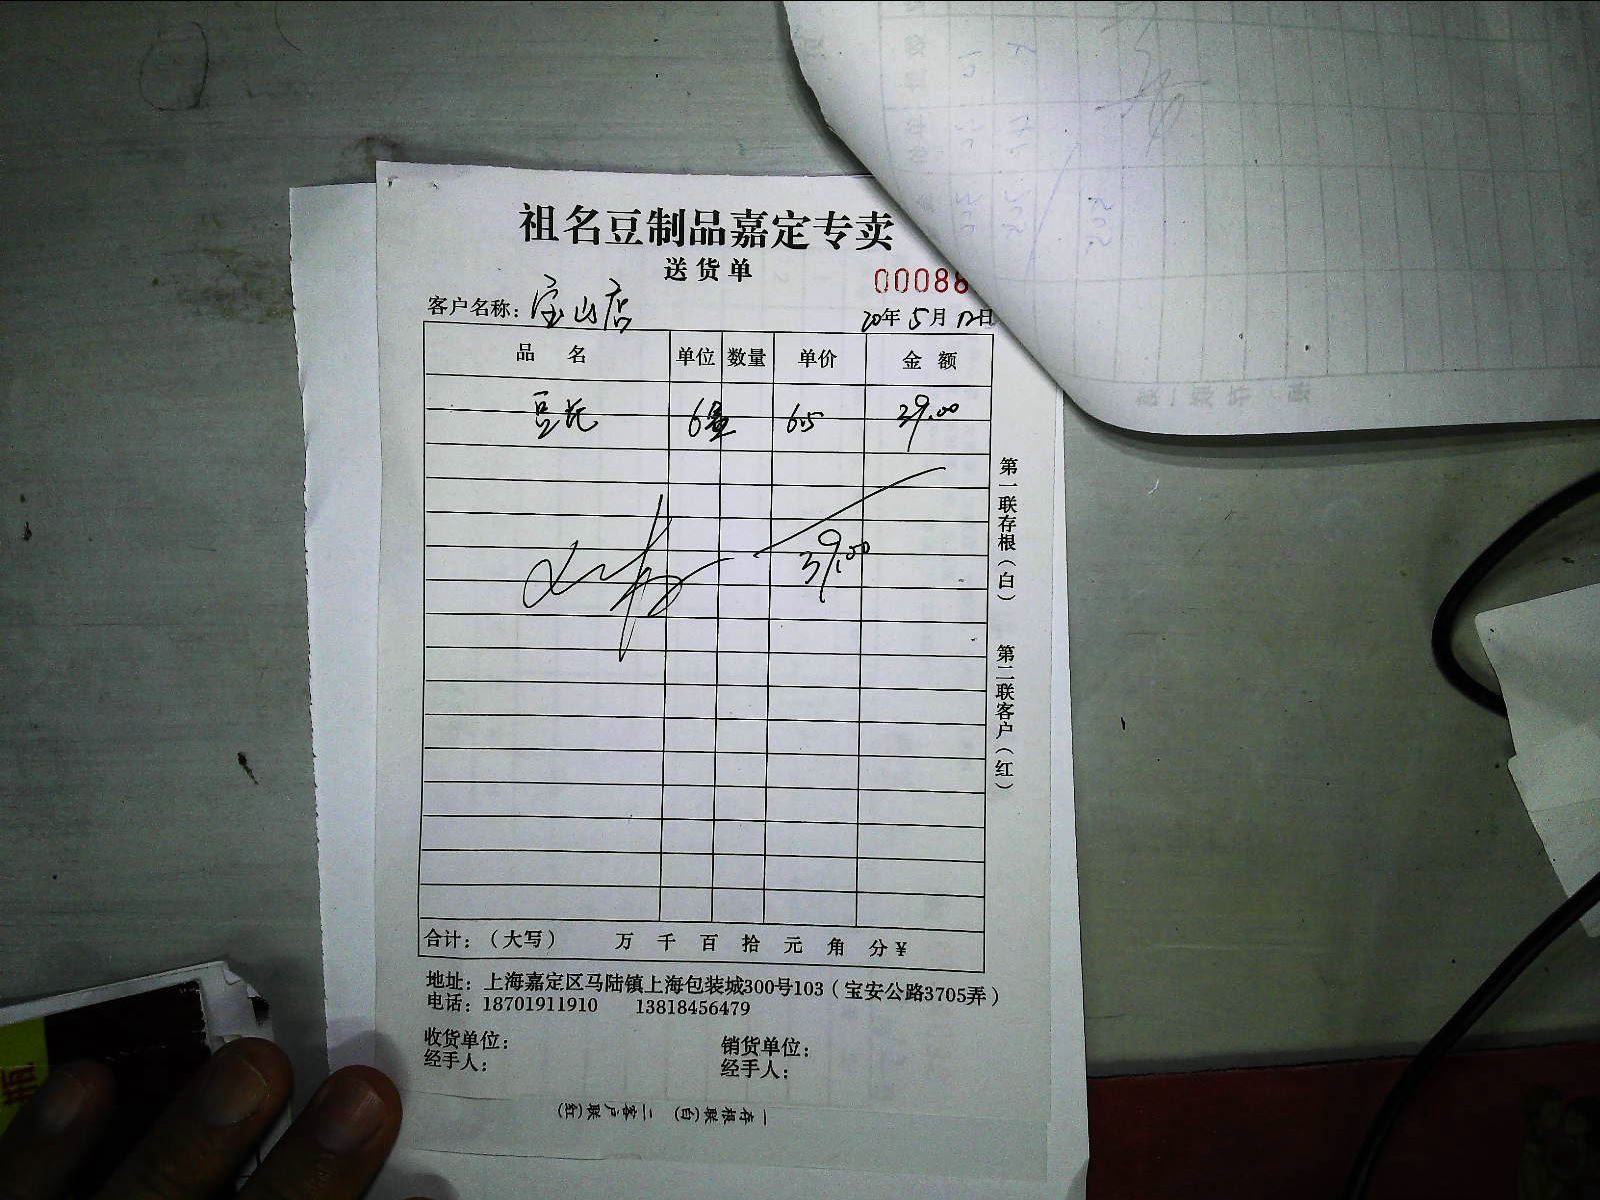 祖名豆制品嘉定专卖
送货单
00088
客户名称：宝山店
20年5月12日
品 名 单位 数量 单价 金 额
豆花 6盒 6.5 39.00
39.00
第一联存根（白） 第二联客户（红）
合计：（大写） 万 千 百 拾 元 角 分￥
地址：上海嘉定区马陆镇上海包装城300号103（宝安公路3705弄）
电话：18701911910 13818456479
收货单位： 销货单位：
经手人： 经手人：
一存根联(白) 二客户联(红)